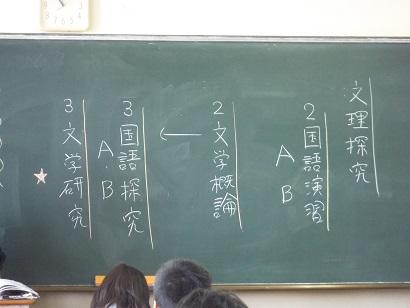 文理探究
2国語演習
A
B
2文学概論
←
3国語探究
A.B
3文学研究
★